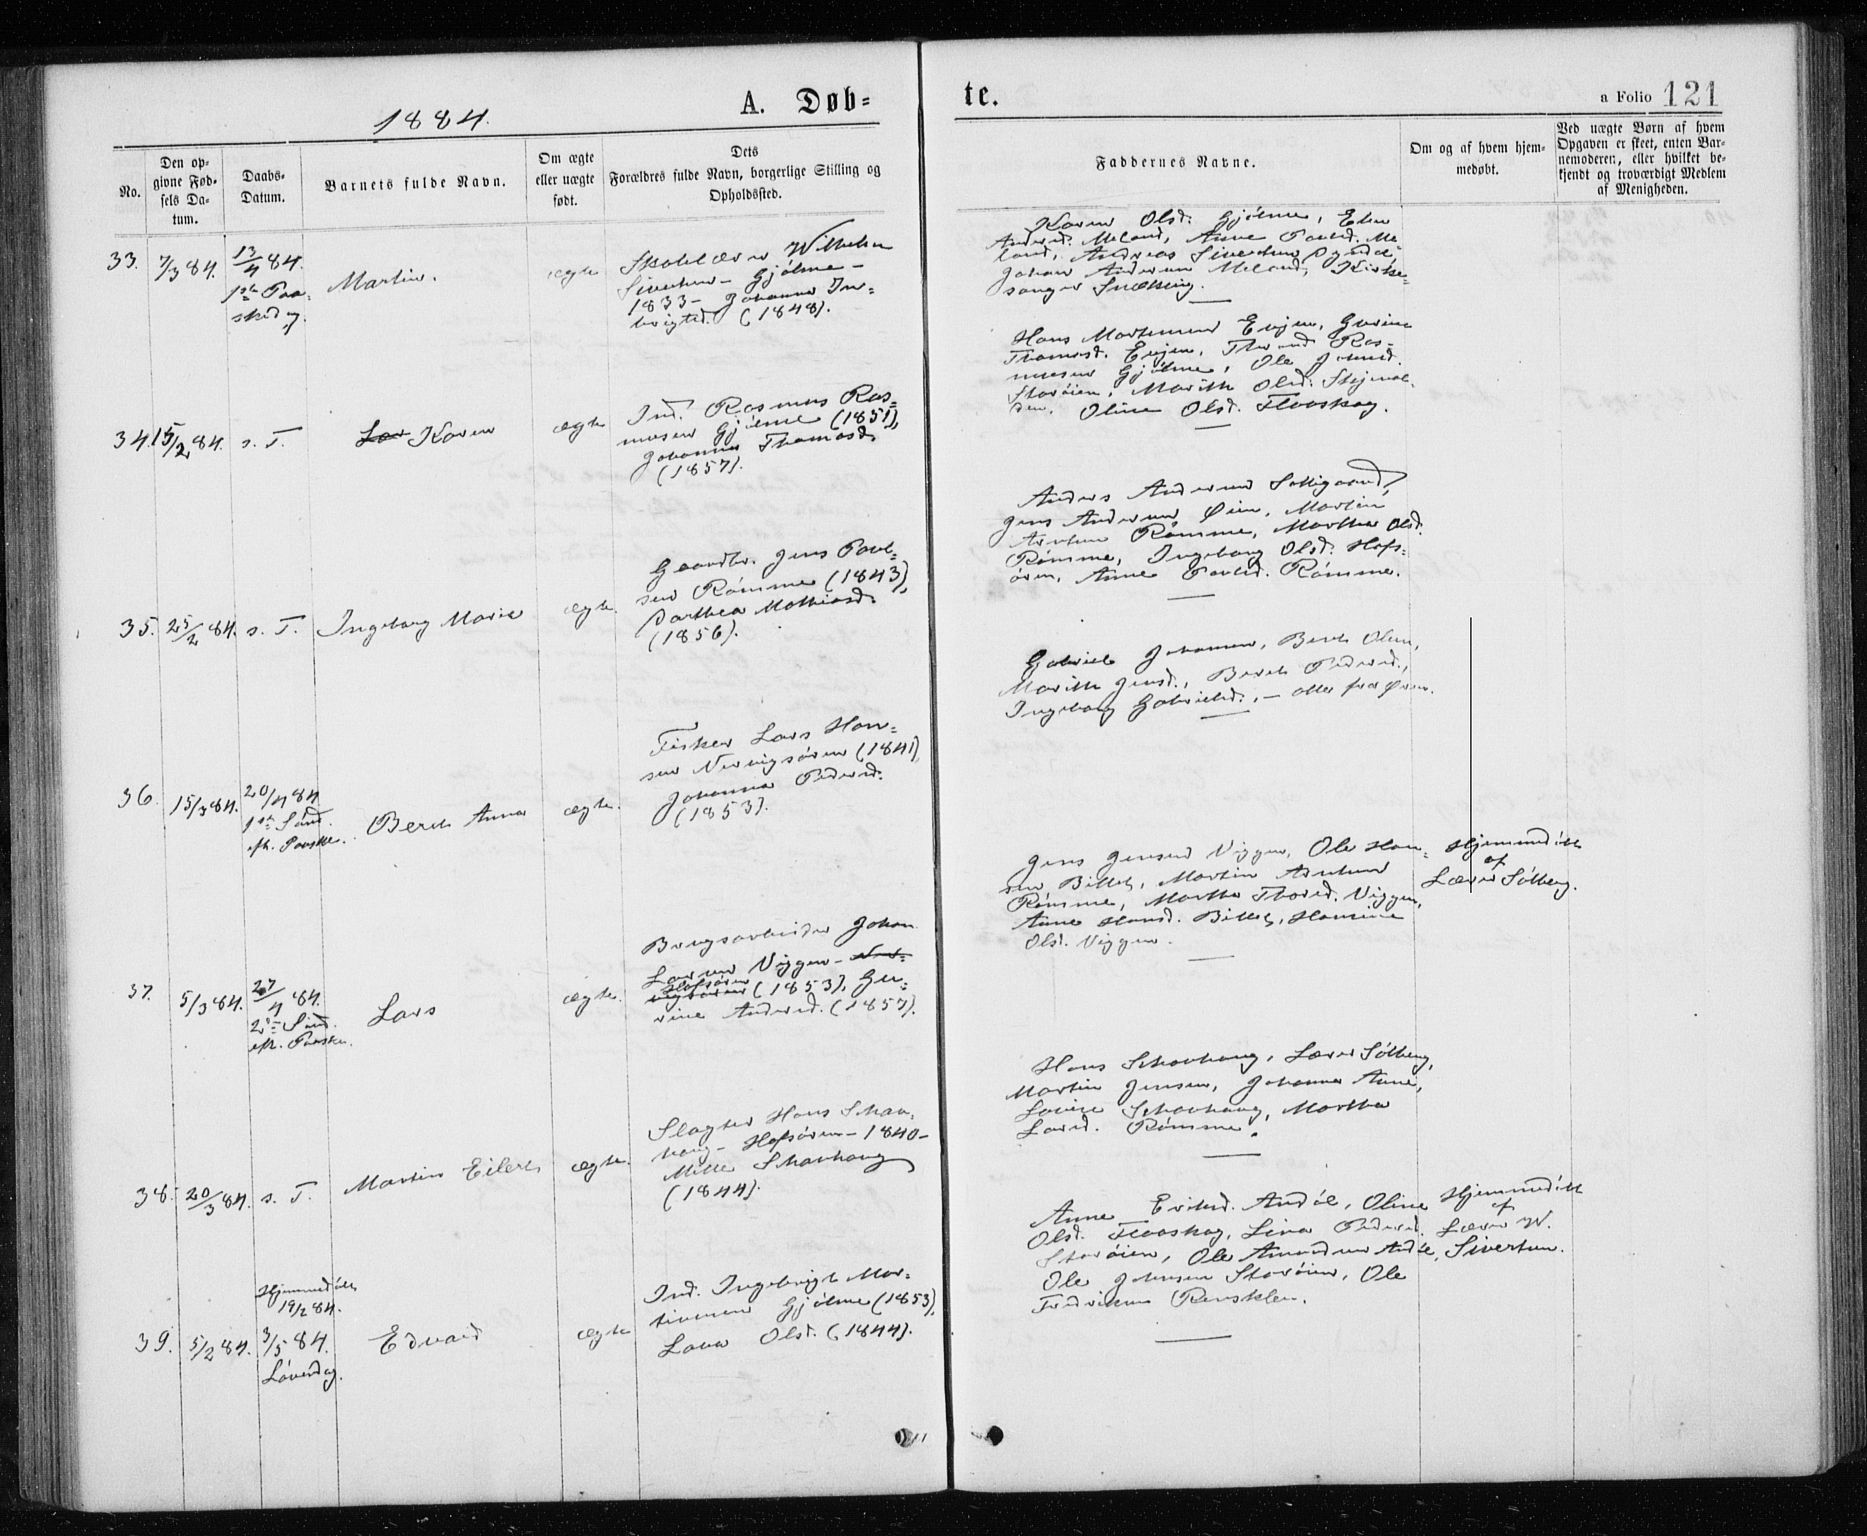 1884.
A. Døb=
te.
a Folio 121
No.
Den op-
givne Fød-
sels Da-
tum.
Daabs-
Datum.
Barnets fulde Navn.
Om ægte
eller uægte
født.
Dets
Forældres fulde Navn, borgerlige Stilling og
Opholdssted.
Faddernes Navne.
Om og af hvem hjem-
medøbt.
Ved uægte Børn af hvem
Opgaven er skeet, enten Bar-
nemoderen, eller hvilket be-
kjendt og troværdigt Medlem
af Menigheden.
33. 7/3 84.
13/4 84.
1ste Paa-
skedag.
Martin.
ægte
Skolelærer Wilhelm
Sivertsen - Gjølme -
1833 - Johanna In-
brigtsd. (1848).
Karen Olsd. Gjølme, Elen
Andersd. Meland, Anne Paulsd. Me-
land, Andreas Sivertsen
Johan Andersen Meland, Kirke-
sanger Snekking.
34. 15/2 84. s. T.
Lar Karen
ægte
Ind. Rasmus Ras-
musen Gjølme (1851),
Johanna Thomasd.
(1857).
Hans Mortensen Evjen, Gurine
Thomasd. Evjen, Thorand Ras-
musen Gjølme, Ole Johnsd.
Storøien, Marith Olsd.
Oline Olsd. Flaaskog.
35. 25/2 84. s. T.
Ingeborg Marie
ægte.
Gaardbr. Jens Paul-
sen Rømme (1843),
Dorthea Mathiasd.
(1856).
Anders Andersen Solligaard,
Jens Andersen Øien, Martin
Arntsen Rømme, Martha Olsd.
Rømme, Ingeborg Olsd. Hofs-
øren, Anne Paulsd. Rømme.
36. 15/3 84.
20/4 84
1ste Sønd.
eft. Paaske.
Bereth Anna
ægte.
Fisker Lars Han-
sen Nervigsøren (1841)
Johanna Pedersd.
(1853).
Gabriel Johansen, Bereth Olsen,
Marith Jensd., Bereth Pedersd.,
Ingeborg Gabrielsd., - alle fra Øren.
37. 5/3 84.
27/4 84.
2den Sønd.
eft. Paaske.
Lars
ægte.
Brugsarbeider Johan
Larsen Viggen - Ner-
Hofsøren
vigsøren (1853), Gu-
rine Andersd. (1857).
Jens Jensen Viggen, Ole Han-
sen Billeth, Martin Arntsen
Rømme, Martha Thorsd. Viggen,
Anne Hansd. Billeth, Hansine
Olsd. Viggen.
Hjemmedøbt
af
Lærer Solberg.
38. 20/3 84. s. T.
Martin Eilert
ægte.
Slagter Hans Skau-
haug - Hofsøren - 1840 -
Mette Skauhaug
(1844).
Hans Skauhaug, Lærer Solberg,
Martin Jensen, Johanna Anne,
Lovise Skauhaug, Martha
Larsd. Rømme.
39. 5/2 84.
Hjemmedøbt
19/2 84.
3/5 84.
Løverdag.
Edvard
ægte
Ind. Ingebrigt Mar-
tinsen Gjølme (1853),
Lava Olsd. (1844).
Anne Eriksd. Andøl, Oline
Olsd. Flaaskog, Lina Pedersd.
Storøien, Ole Amundsen Andøl,
Ole Johnsen Storøien, Ole
Fredriksen Rensklev.
Hjemmedøbt
af
Lærer W.
Sivertsen.